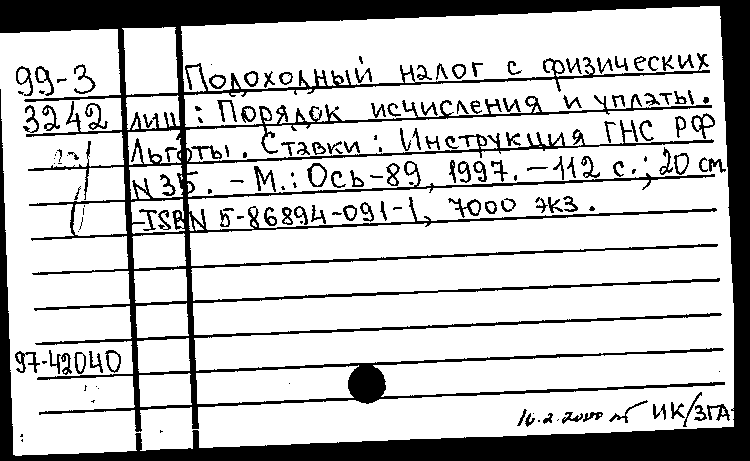 99-3 Подоходный налог с физических
3242 лиц : Порядок исчисления и уплаты.
Льготы. Ставки : Инструкция ГНС РФ
N 35. - М.: Ось-89, 1997. - 112 с.; 20 см
-ISBN 5-86894-091-1, 7000 экз.
97-42040
16.2.2000 ИК/ЗГА